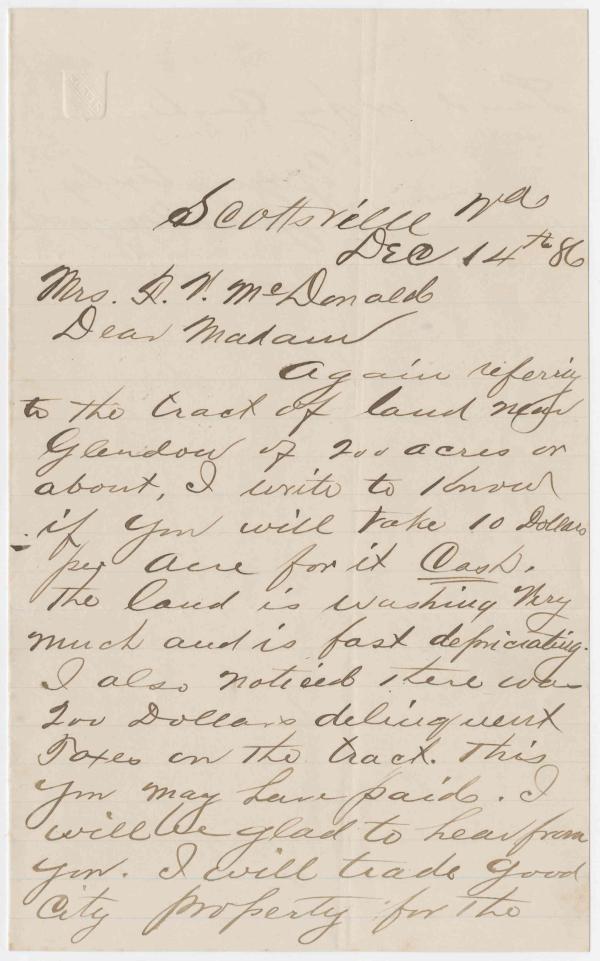 Scottsville Va
Dec 14th 86
Mrs. R. V. McDonald
Dear Madam
Again referig
to the tract of land near
Glendow of 200 acres or
about, I write to Know
if you will take 10 Dollars
per Acre for it Cash.
the land is washing Very
much and is fast depriciating.
I also noticed there was
200 Dollars delinquent
Taxes on the tract. This
you may have paid. I
will be glad to hear from
you. I will trade good
City property for the